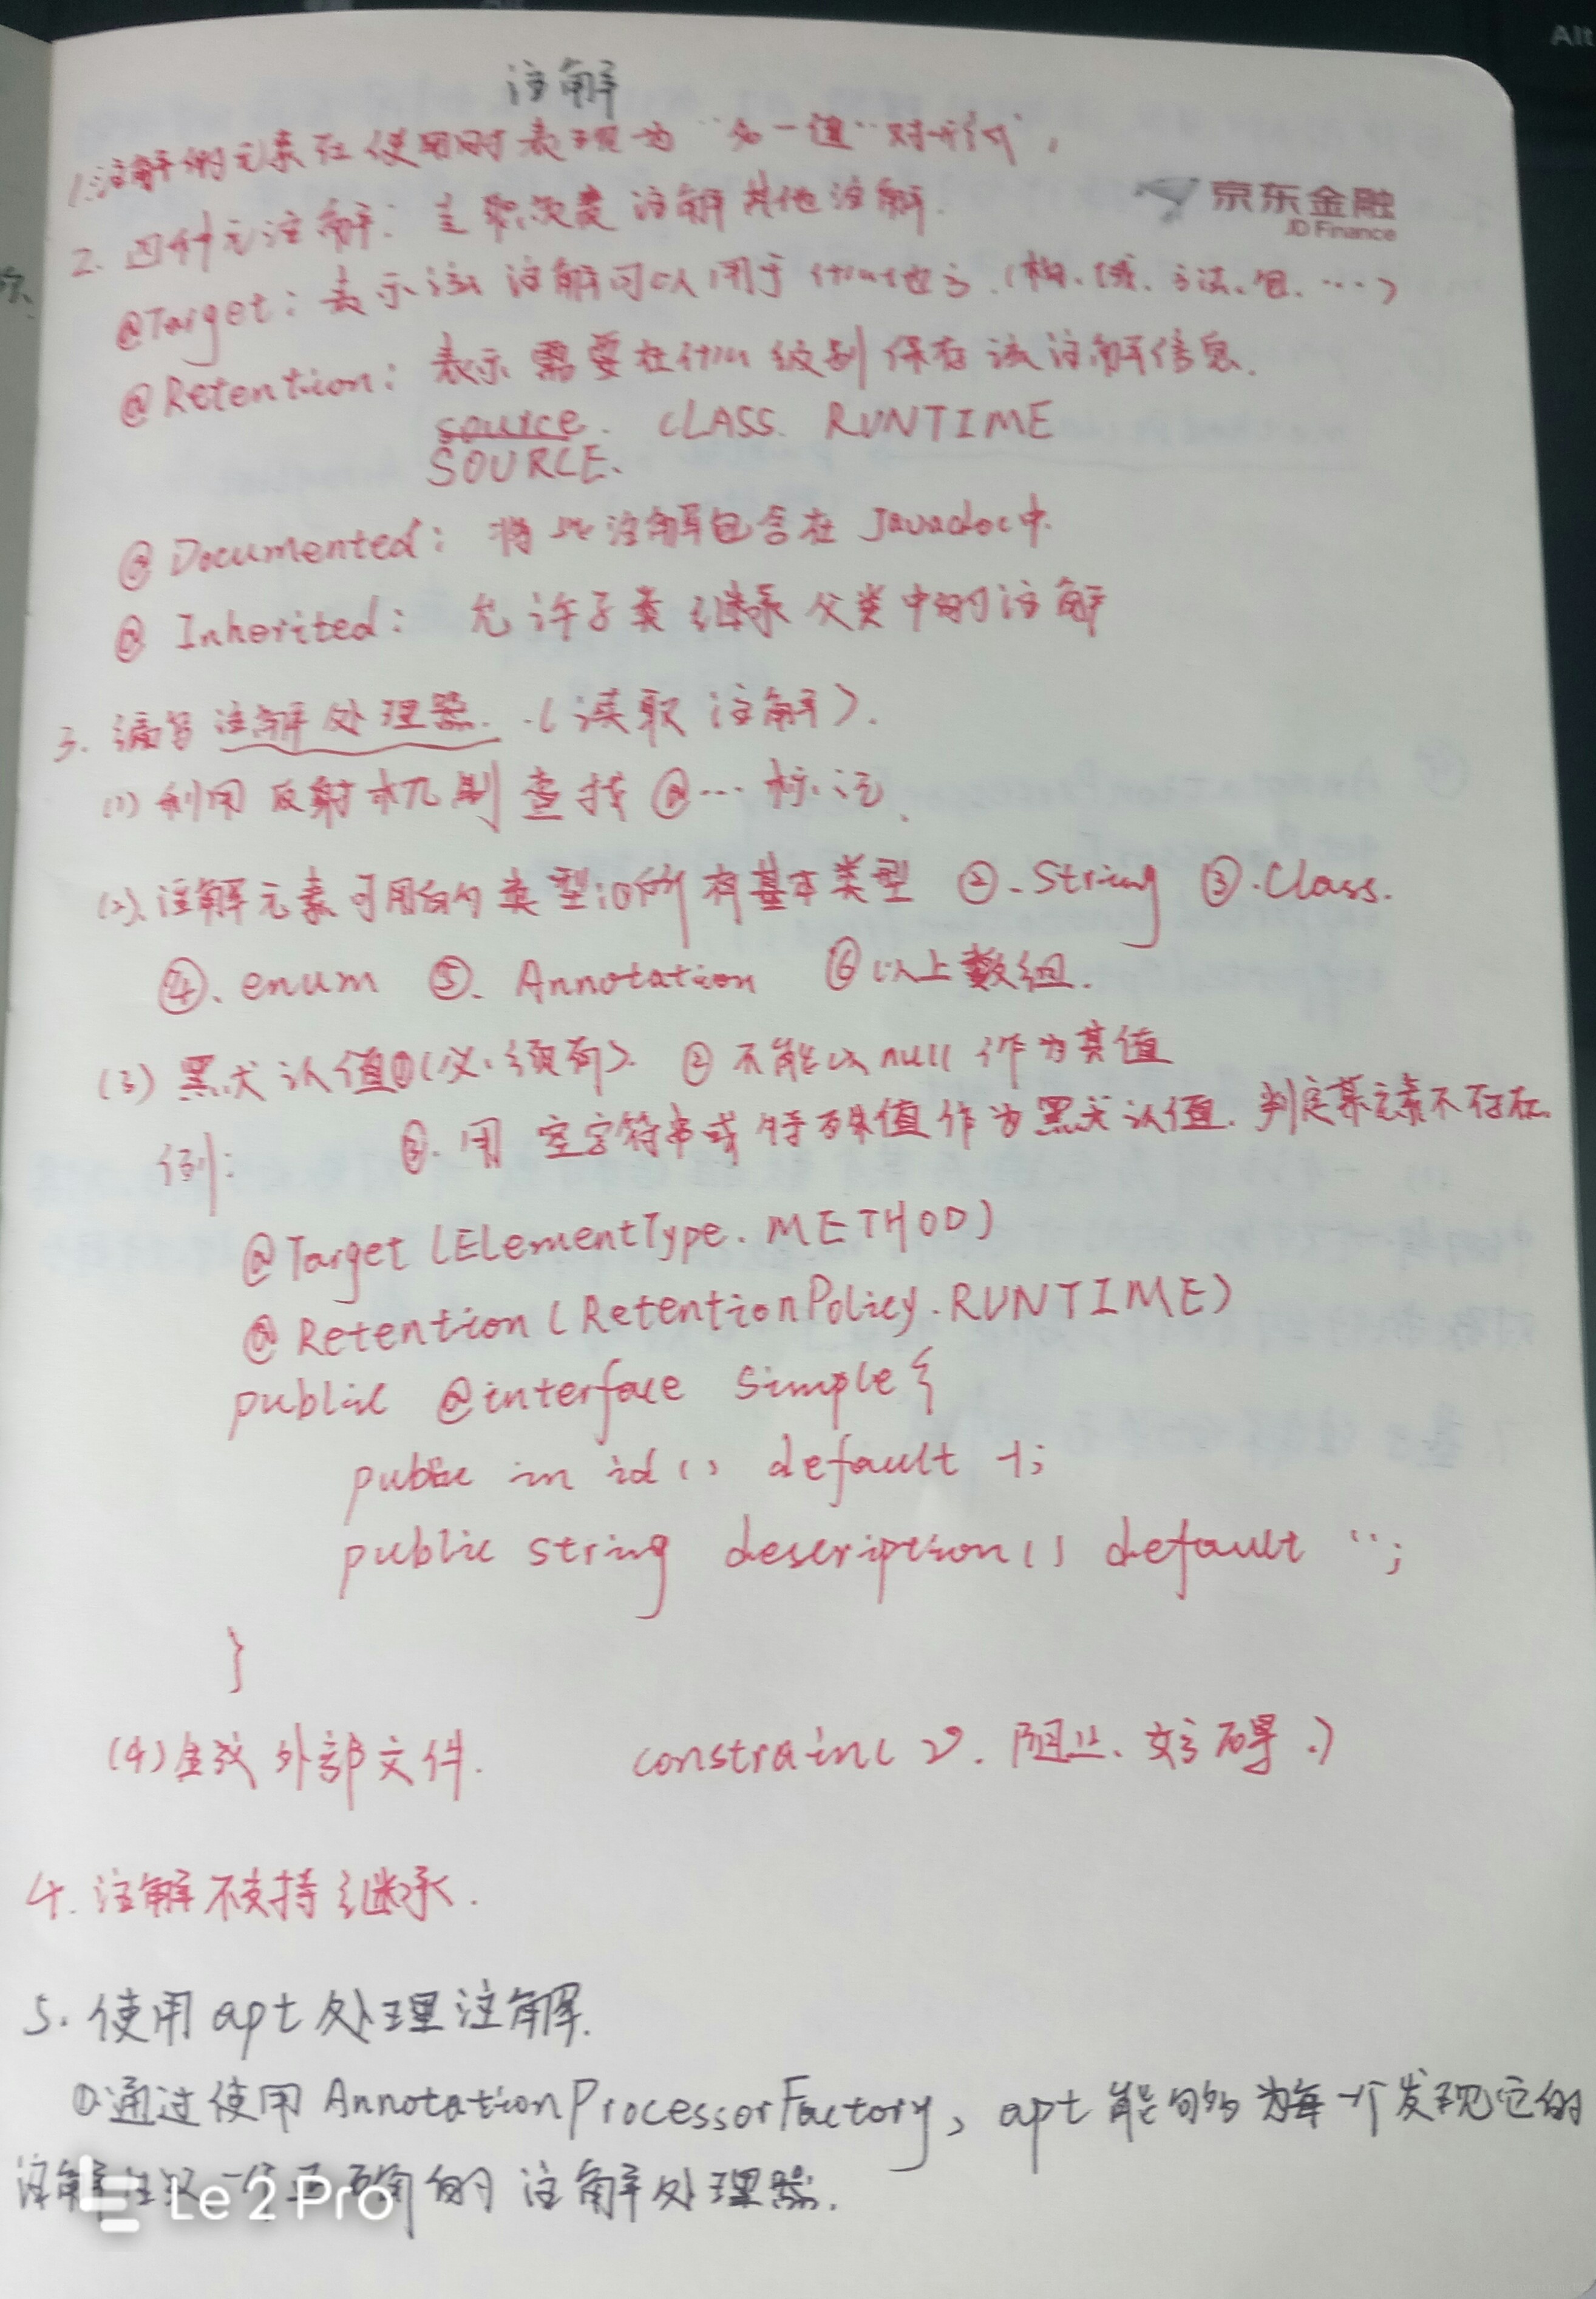 注解
1.注解的元素在使用时表现为"名一值"对形式,
京东金融
JD Finance
2. 四种元注解: 专职负责注解其他注解.
@Target: 表示该注解可以用于什么地方.(构、域、方法、包、…)
@Retention: 表示需要在什么级别保存该注解信息.
source. CLASS. RUNTIME
SOURCE、
@Documented: 将此注解包含在Javadoc中.
@Inherited: 允许子类继承父类中的注解
3. 编写注解处理器. (读取注解).
(1) 利用反射机制查找@…标记.
(2)、注解元素可用的类型:①所有基本类型 ②.String ③.Class.
④、enum ⑤、Annotation ⑥以上数组.
(3) 默认值①(必须有). ② 不能以null作为其值
例: ③. 用空字符串或特殊值作为默认值. 判定某元素不存在.
@Target(ElementType.METHOD)
@Retention(RetentionPolicy.RUNTIME)
public @interface Simple{
public in id() default -1;
public string description() default "";
}
(4)生成外部文件. constrain( v. 阻止、妨碍.)
4. 注解不支持继承.
5. 使用apt处理注解.
①通过使用AnnotationProcessorFactory, apt能够为每一个发现它的
注解 一个正确的注解处理器.
Le 2 Pro
Alt